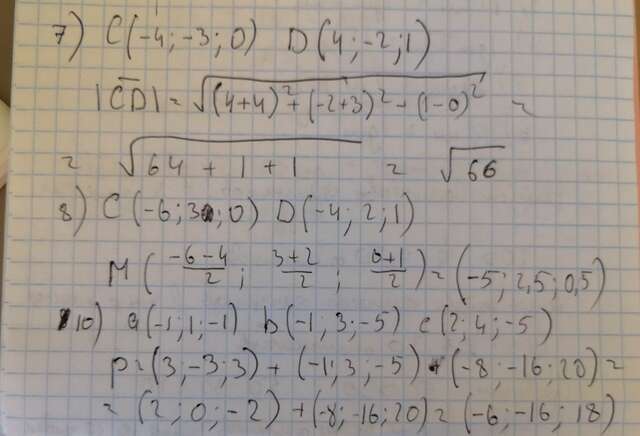 7) C(-4;-3;0) D(4;-2;1)
|CD| = √(4+4)²+(-2+3)²+(1-0)² =
= √64+1+1 = √66
8) C(-6;3;0) D(-4;2;1)
M(-6-4/2; 3+2/2; 0+1/2) = (-5;2,5;0,5)
10) a(-1;1;-1) b(-1;3;-5) c(2;4;-5)
p=(3;-3;3)+(-1;3;-5)+(-8;-16;20)=
=(2;0;-2)+(-8;-16;20)=(-6;-16;18)